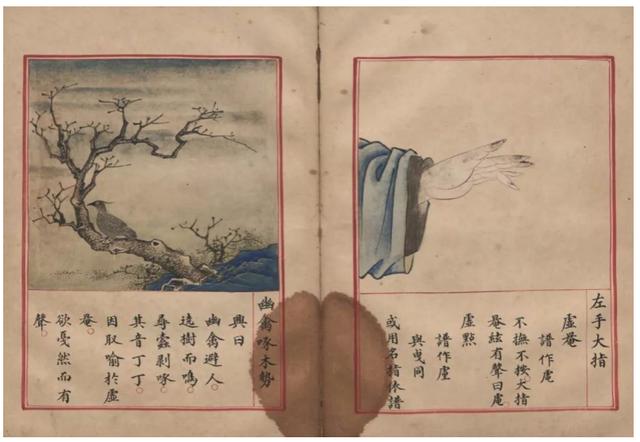 左手大指
虛罨
譜作
不撫不按大指
罨絃有聲曰
虛點
譜作
與曳同
或用名指依譜
幽禽啄木勢
興曰
幽禽避人。
遶樹而鳴。
尋蠹剥啄。
其音丁丁。
因取喻於虛
罨。
欲戛然而有
聲。